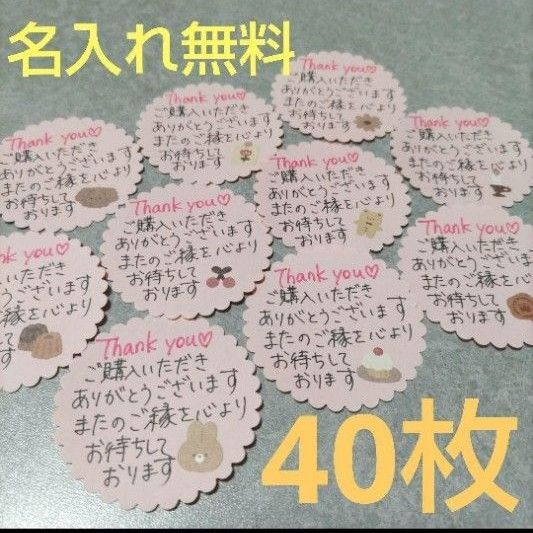 名入れ無料
Thank you♡
ご購入いただき
ありがとうございます
またのご縁を心より
お待ちして
おります
Thank you♡
ご購入いただき
ありがとうございます
またのご縁を心より
お待ちして
おります
Thank you♡
ご購入いただき
ありがとうございます
またのご縁を心より
お待ちして
おります
Thank you♡
ご購入いただき
ありがとうございます
またのご縁を心より
お待ちして
おります
Thank you♡
ご購入いただき
ありがとうございます
またのご縁を心より
お待ちして
おります
Thank you♡
ご購入いただき
ありがとうございます
またのご縁を心より
お待ちして
おります
Thank you♡
ご購入いただき
ありがとうございます
またのご縁を心より
お待ちして
おります
Thank you♡
ご購入いただき
ありがとうございます
またのご縁を心より
お待ちして
おります
you♡
購入いただき
がとうございます
のご縁を心より
お待ちして
おります
Thank you♡
ご購入いただき
ありがとうございます
またのご縁を心より
お待ちして
おります
Thank you♡
ご購入いただき
ありがとうございます
またのご縁を心より
お待ちして
おります
40枚